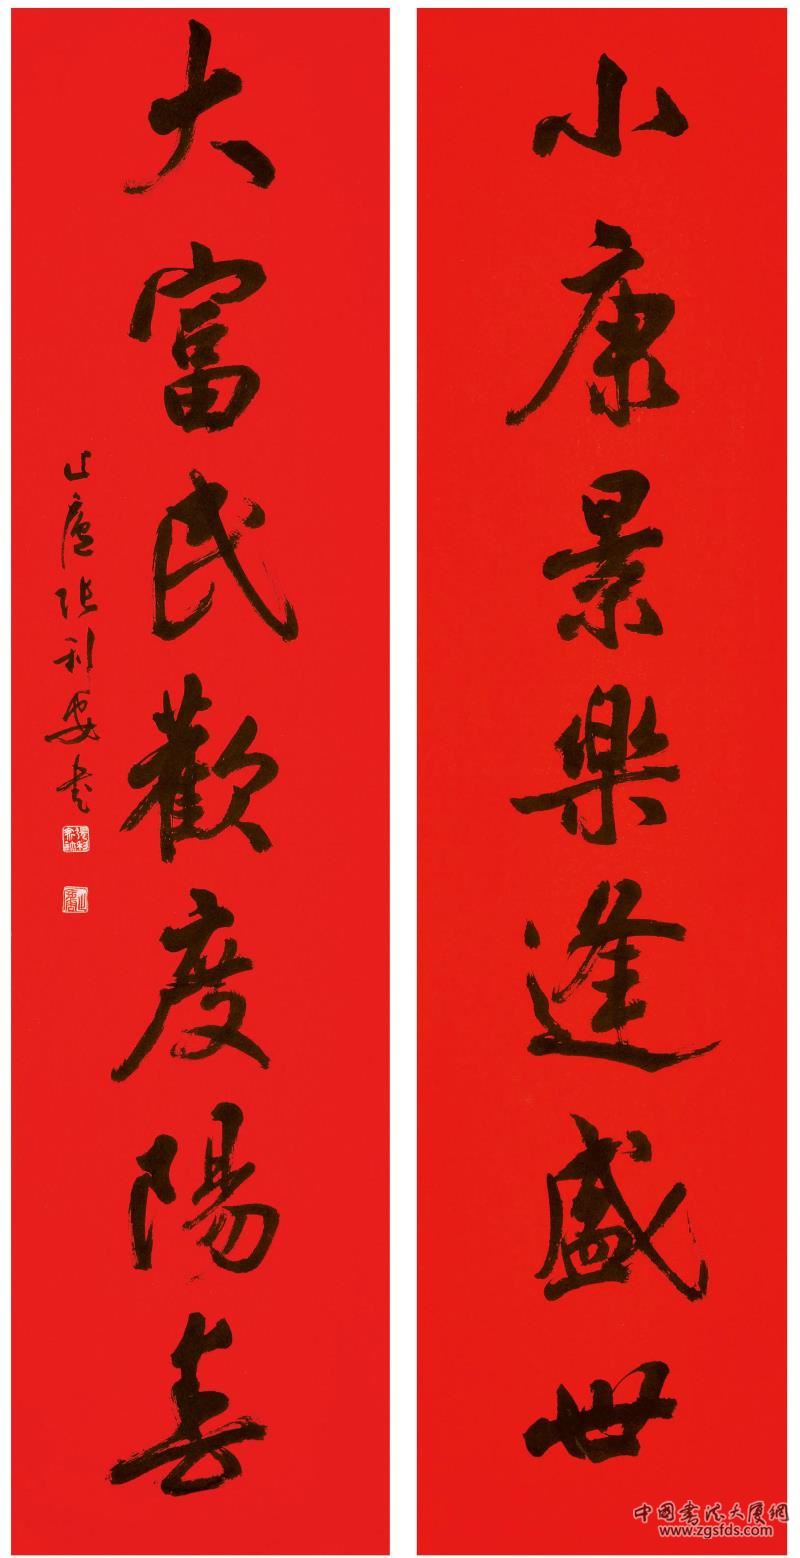 小康景樂逢盛世
大富民歡度陽春
止廬張利安書
中国书法大厦网
www.zgsfds.com